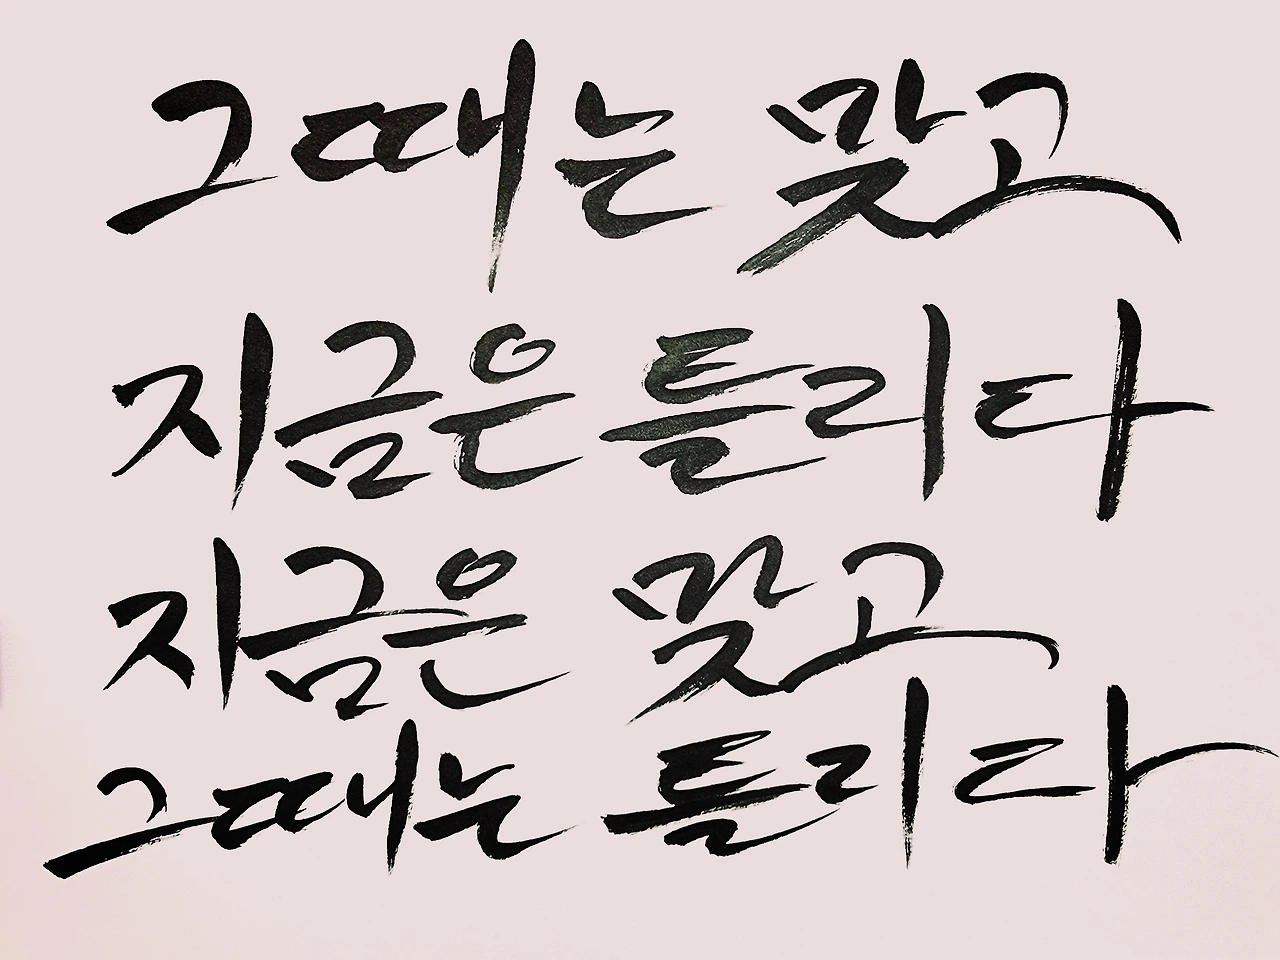 그때는 맞고
지금은 틀리다
지금은 맞고
그때는 틀리다